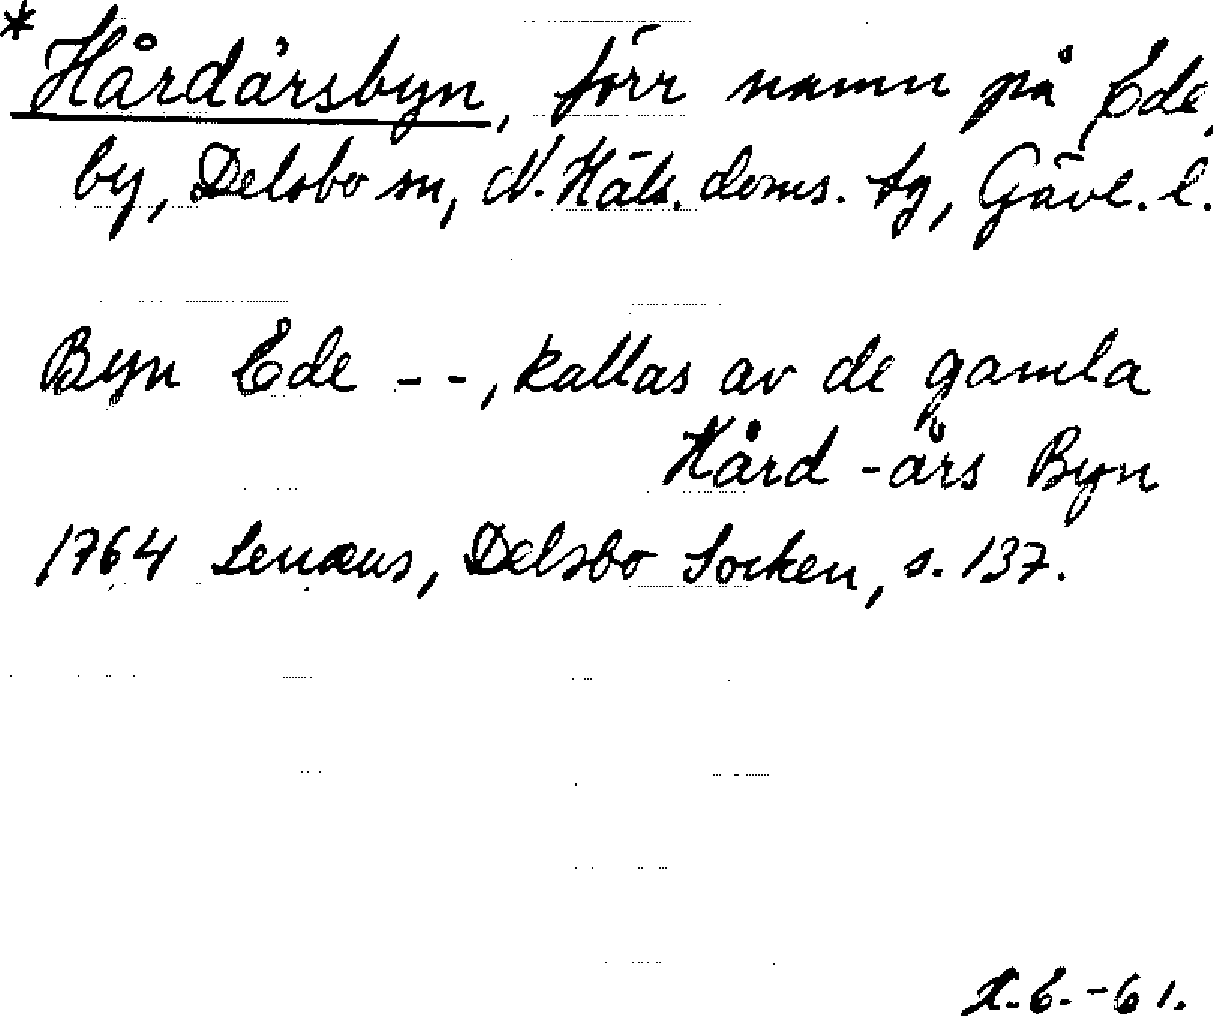 * Hårdårsbyn, förr namn på Ede,
by, Delsbo sn, N. Häls. doms. sg, Gävl. l.
Byn Ede - -, kallas av de gamla
Hård -års Byn
1764 Lenæus, Delsbo Socken, s. 137.
E. -61.